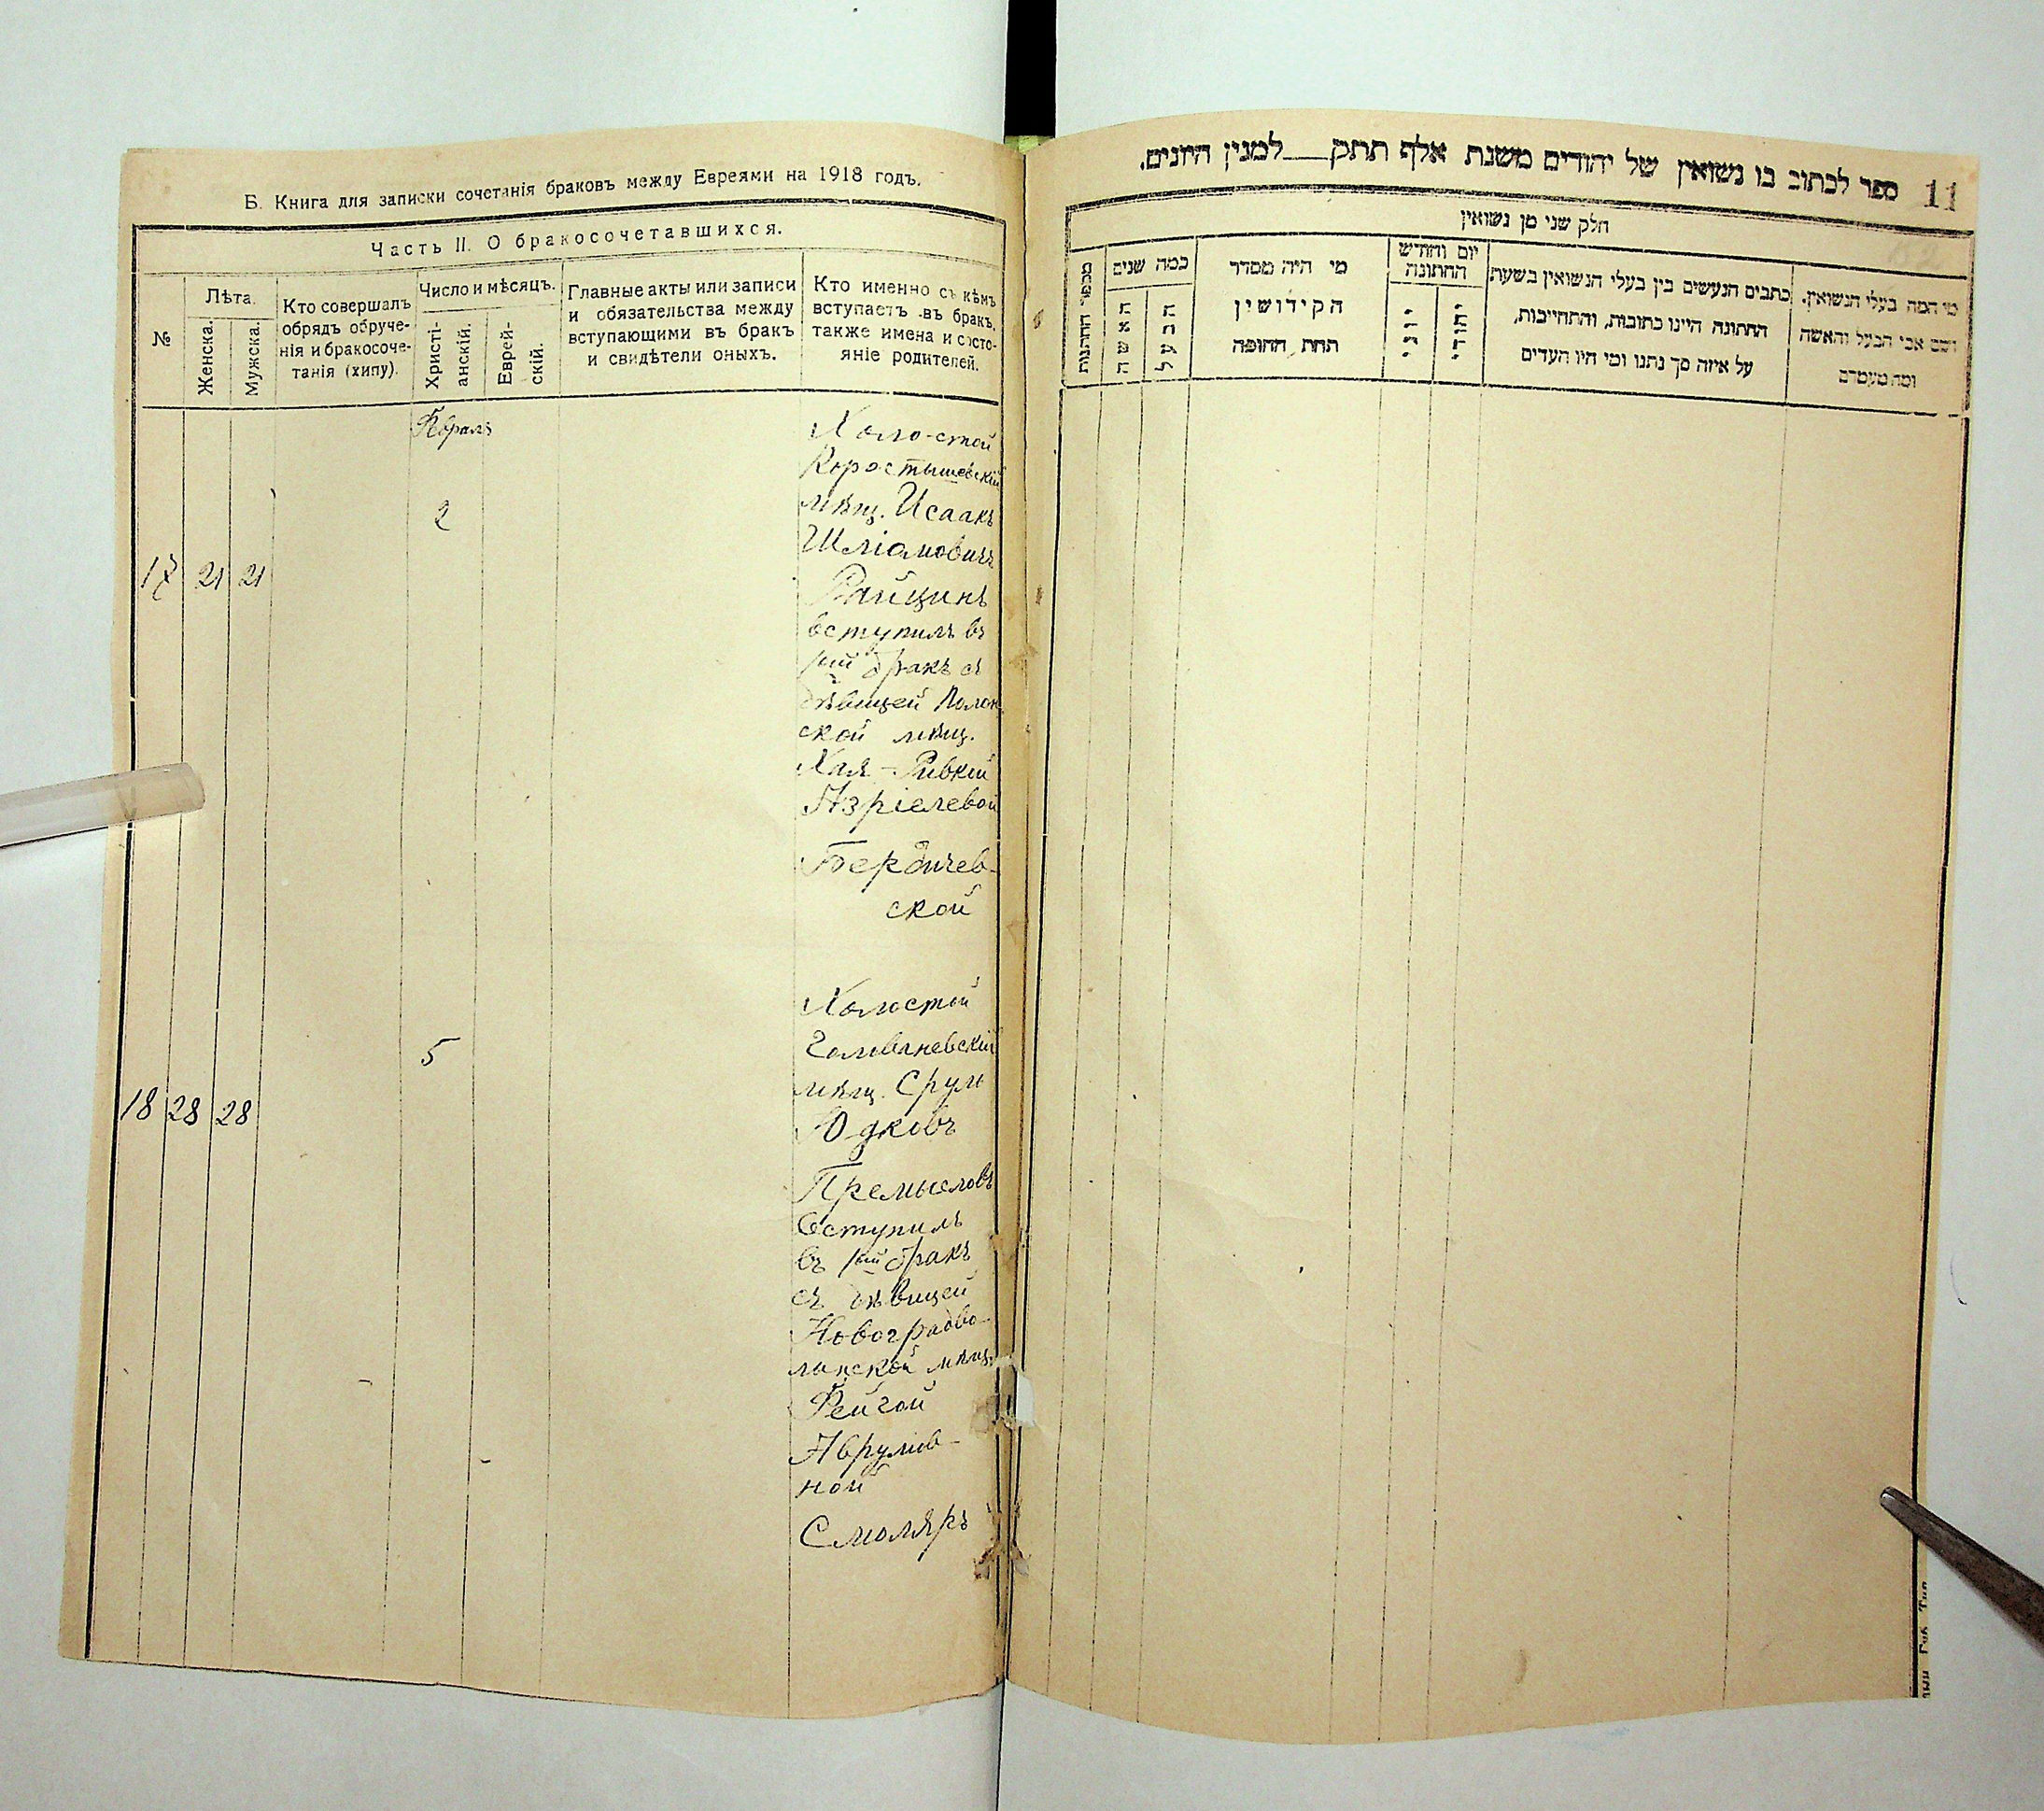 Б. Книга для записки сочетанія браковъ между Евреями на 1918 годъ.
Часть II. О бракосочетавшихся.
№
Лѣта.
Женска.
Мужска.
Кто совершалъ
обрядъ обруче-
нія и бракосоче-
танія (хипу).
Число и мѣсяцъ.
Христі-
анскій.
Еврей-
скій.
Главные акты или записи
и обязательства между
вступающими въ бракъ
и свидѣтели оныхъ.
Кто именно съ кѣмъ
вступаетъ въ бракъ,
также имена и состо-
яніе родителей.
Февраль
17 21 21
2
Холостой
Коростышевскій
мѣщ. Исаакъ
Шліомовичъ
Райцинъ
вступилъ въ
1ый бракъ съ
дѣвицей Полон
ской мѣщ.
Хая-Ривкой
Азріелевой
Бердичев-
ской
18 28 28
5
Холостой
Голованевскій
мѣщ. Сруль
Юдковъ
Премысловъ
вступилъ
въ 1ый бракъ
съ дѣвицей
Новоградво-
лынской мѣщ.
Фейгой
Аврумов-
ной
Смоляръ
ספר לכתוב בו נשואין של יהודים משנת אלף תתק___למנין היונים.
11
חלק שני מן נשואין
מספר החתונות
כמה שנים
האשה
הבעל
מי היה מסדר
הקידושין
תחת החופה
יום וחודש
החתונה
יוני
יהודי
כתבים הנעשים בין בעלי הנשואין בשעת
החתונה היינו כתובות, והתחייבות,
על איזה סך נתנו ומי היו העדים
מי המה בעלי הנשואין,
ושם אבי הבעל והאשה
ומה מעמדם